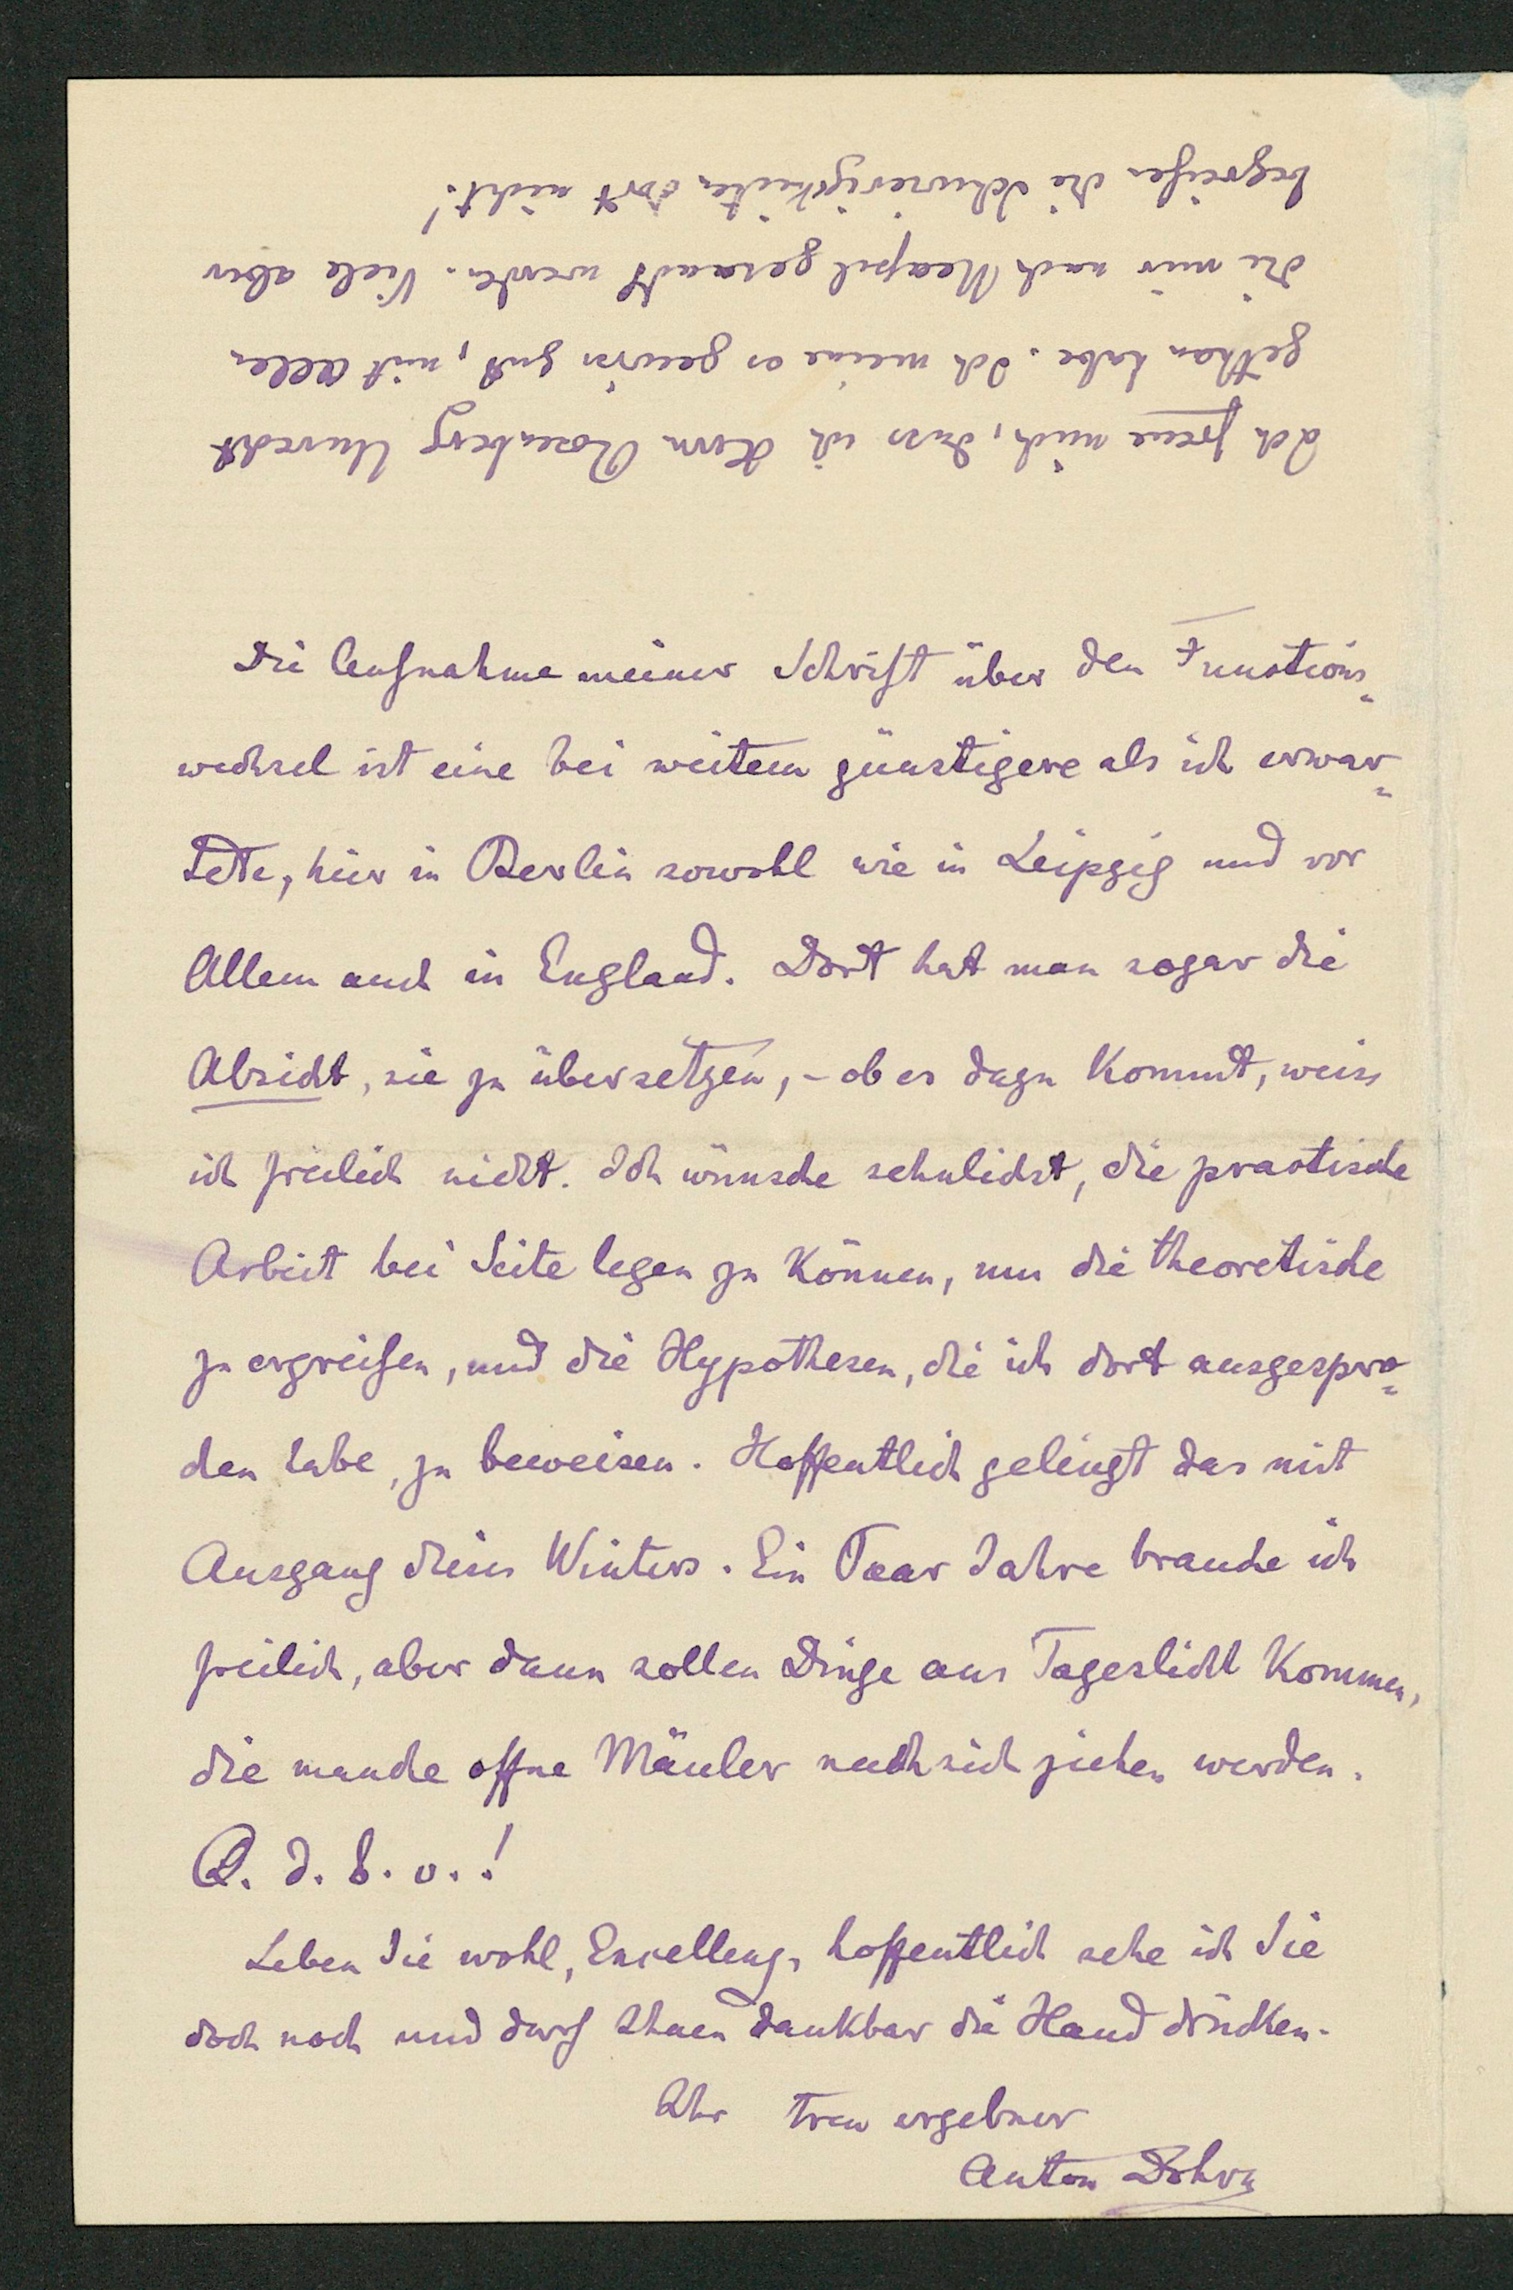 Ich freue mich, dass ich Herrn Rosenberg Unrecht
gethan habe. Ich meine es gewiss gut, mit Allen
die mir nach Neapel gesandt werden. Viele aber
begreifen die Schwierigkeiten dort nicht!
Die Aufnahme meiner Schrift über den Functions-
wechsel ist eine bei weitem günstigere als ich erwar-
tete, hier in Berlin sowohl wie in Leipzig und vor
Allem auch in England. Dort hat man sogar die
Absicht, sie zu übersetzen, – ob es dazu kommt, weiss
ich freilich nicht. Ich wünsche sehnlichst, die practische
Arbeit bei Seite legen zu können, um die theoretische
zu ergreifen, und die Hypothesen, die ich dort ausgespro-
chen habe, zu beweisen. Hoffentlich gelingt das mit
Ausgang dieses Winters. Ein Paar Jahre brauche ich
freilich, aber dann sollen Dinge ans Tageslicht kommen,
die manche offne Mäuler nach sich ziehen werden.
Q. d. b. v.!
Leben Sie wohl, Excellenz, hoffentlich sehe ich Sie
doch noch und darf Ihnen dankbar die Hand drücken.
Ihr treu ergebner
Anton Dohrn